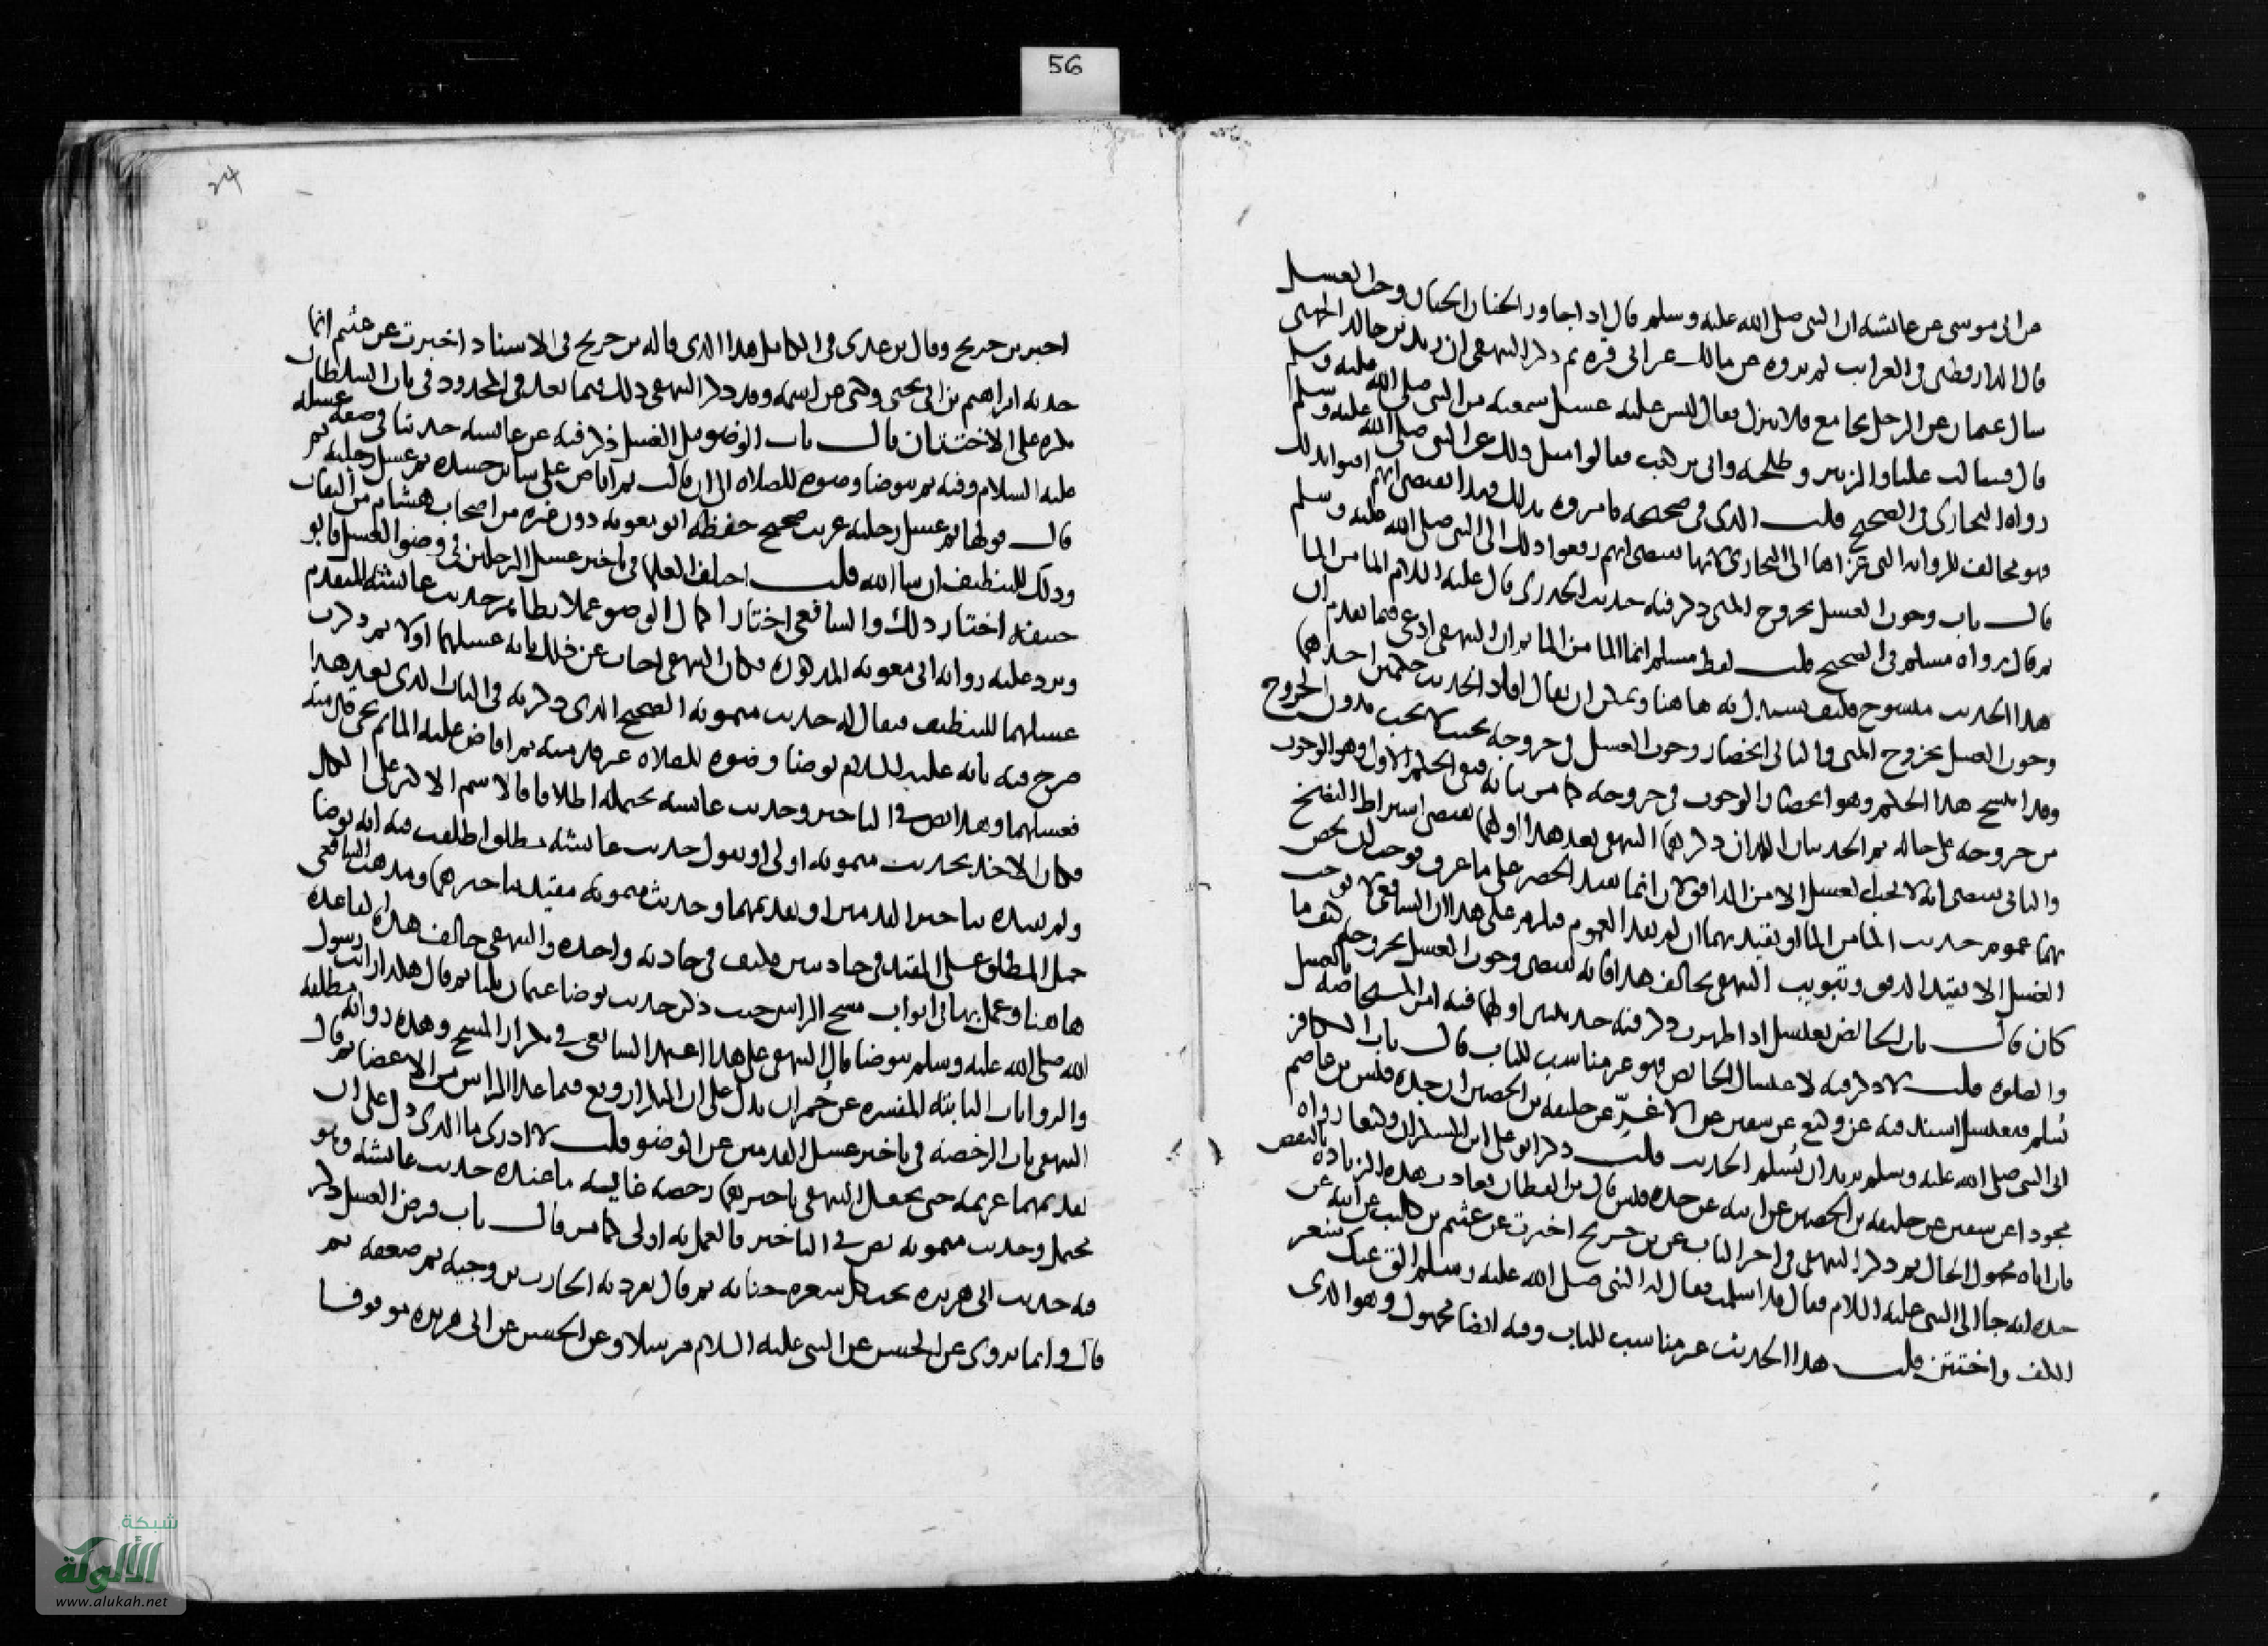 56
عن ابى موسى عن عائشه ان النبى صلى الله عليه وسلم قال اذا جاوز الختان الختان وجب الغسل
قال الدارقطنى فى الغرايب لم يروه عن مالك غير ابى قره ثم ذكر البيهقى ان زيد بن خالد الجهنى
سال عثمان عن الرجل يجامع فلا ينزل فقال ليس عليه غسل سمعته من النبى صلى الله عليه وسلم
قال فسالت عليا والزبير وطلحه وابى بن كعب فقالوا مثل ذلك عن النبى صلى الله عليه وسلم
رواه البخارى فى الصحيح قلت الذى فى صحيحه فامروه بذلك وهذا يقتضى انهم افتوا بذلك
فهو مخالف للروايه التى عزاها الى البخارى لانها تقتضى انهم رفعوا ذلك الى النبى صلى الله عليه وسلم
قال باب وجوب الغسل بخروج المنى ذكر فيه حديث الخدرى قال عليه السلام الما من الما
ثم قال رواه مسلم فى الصحيح قلت لفظ مسلم انما الما من الما ثم ان البيهقى ادعى فيما تقدم ان
هذا الحديث منسوخ فكيف يستدل به هاهنا ويمكن ان يقال افاد الحديث حكمين احدهما
وجوب الغسل بخروج المنى والثانى انحصار وجوب الغسل فى خروجه بحيث لا يجب بدون الخروج
وقد نسخ هذا الحكم وهو انحصار الوجوب فى خروجه كما مر بيانه فبقى الحكم الاول وهو الوجوب
من خروجه على حاله ثم الحديثان اللذان ذكرهما البيهقى بعد هذا اولهما يقتضى اشتراط النضخ
والثانى يقتضى انه لا يجب الغسل الا من الدافق لان انما تفيد الحصر على ما عرف فوجب ان يخص
بهما عموم حديث الما من الما او يقيد بهما ان لم يفد العموم فيلزم على هذا ان الشافعى لا يوجب
الغسل الا بقيد الدفق وتبويب البيهقى يخالف هذا فانه يقتضى وجوب الغسل بخروجه كيف ما
كان قال باب الحائض تغتسل اذا طهرت ذكر فيه حديثين اولهما فيه امر المستحاضه بالغسل
والصلوه قلت لا ذكر فيه لاغتسال الحائض فهو غير مناسب للباب قال باب الكافر
يسلم فيغتسل اسند فيه عن وكيع عن سفين عن الاغر عن خليفه بن الحصين ان جده قيس بن عاصم
اتى النبى صلى الله عليه وسلم يريد ان يسلم الحديث قلت ذكر ابو على ابن السكن ان وكيعا رواه
مجودا عن سفين عن خليفه بن الحصين عن ابيه عن جده قيس قال بن القطان فعادت هذه الزياده بالنقص
فان اباه مجهول الحال ثم ذكر البيهقى فى اخر الباب عن بن جريج اخبرت عن عثيم بن كليب عن ابيه عن
جده انه جا الى النبى عليه السلام فقال قد اسلمت فقال له النبى صلى الله عليه وسلم الق عنك شعر
الكفر واختتن قلت هذا الحديث غير مناسب للباب وفيه ايضا مجهول وهو الذى
٢٤
اخبر بن جريج وقال بن عدى فى الكامل هذا الذى قاله بن جريج فى الاسناد اخبرت عن عثيم انما
حدثه ابراهيم بن ابى يحيى وكنى عن اسمه وقد ذكر البيهقى ذلك فيما بعد فى الحدود فى باب السلطان
يكره على الاختتان قال باب الوضوء قبل الغسل ذكر فيه عن عائشه حديثا فى وصفه غسله
عليه السلام وفيه ثم يتوضا وضوه للصلاه الى ان قالت ثم افاض على سائر جسده ثم غسل رجليه ثم
قال قولها ثم غسل رجليه غريب صحيح حفظه ابو معويه دون غيره من اصحاب هشام من الثقات
وذلك للتنظيف ان شا الله قلت اختلف العلما فى تاخير غسل الرجلين فى وضو الغسل فابو
حنيفه اختار ذلك والشافعى اختار اكمال الوضو عملا بظاهر حديث عائشه المتقدم
ويرد عليه روايه ابى معويه المذكوره فكان البيهقى اجاب عن ذلك بانه غسلهما اولا ثم ذكرت
غسلهما للتنظيف فيقال له حديث ميمونه الصحيح الذى ذكرته فى الباب الذى بعد هذا
صرح فيه بانه عليه السلام توضا وضوه للصلاه غير قدميه ثم افاض عليه الما ثم نحى قدميه
فغسلهما وهذا نص فى التاخير وحديث عائشه يحتمله اطلاقا لاسم الاكثر على الكل
فكان الاخذ بحديث ميمونه اولى او نقول حديث عائشه مطلق اطلقت فيه انه توضا
ولم تقيده بتاخير القدمين او تقديمهما وحديث ميمونه مقيد بتاخيرهما ومذهب الشافعى
حمل المطلق على المقيد فى حادثتين فكيف فى حادثه واحده والبيهقى خالف هذه القاعده
هاهنا وعمل بها فى ابواب مسح الراس حيث ذكر حديث توضا عثمان ثلثا ثم قال هكذا رايت رسول
الله صلى الله عليه وسلم يتوضا قال البيهقى على هذا اعتمد الشافعى فى تكرار المسح وهذه روايه مطلقه
والروايات الثابته المفسره عن حمران تدل على ان التكرار وقع فيما عدا الراس من الاعضا ثم قال
البيهقى باب الرخصه فى تاخير غسل القدمين عن الوضو قلت لا ادرى ما الذى دل على ان
تقديمهما عزيمه حتى يجعل البيهقى تاخيرهما رخصه غايه ما عنده حديث عائشه وهو
محتمل وحديث ميمونه نص فى التاخير فالعمل به اولى كما مر قال باب فرض الغسل ذكر
فيه حديث ابى هريره تحت كل شعره جنابه ثم قال تفرد به الحارث بن وجيه ثم ضعفه ثم
قال وانما يروى عن الحسن عن النبى عليه السلام مرسلا وعن الحسن عن ابى هريره موقوفا
شبكة
الألوكة
www.alukah.net